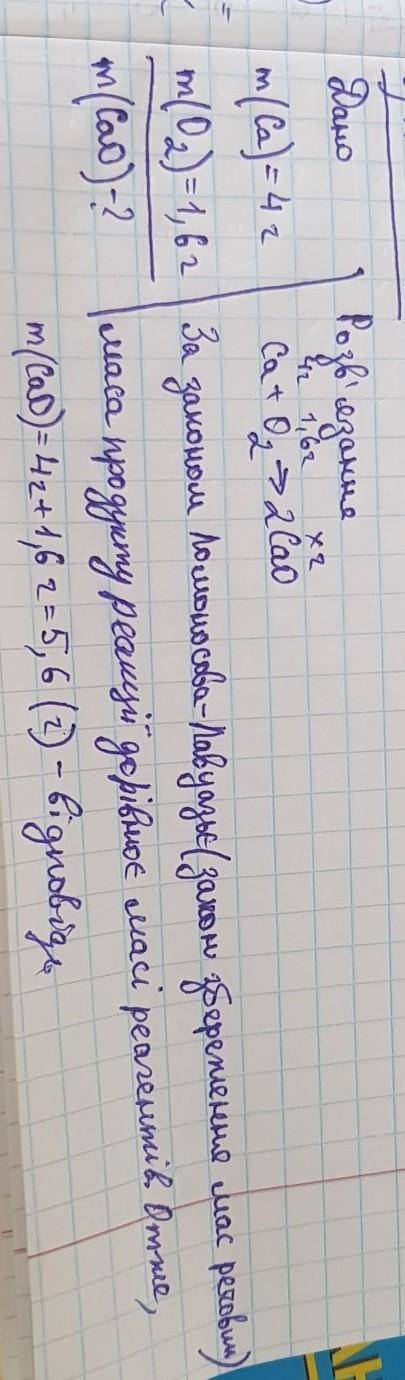 Дано
Розв'язання
4г 1,6г хг
m(Ca)=4г
Ca + O2 → 2CaO
m(O2)=1,6г
За законом Ломоносова-Лавуазьє (закон збереження мас речовин)
m(CaO)-?
маса продукту реакції дорівнює масі реагентів. Отже,
m(CaO)=4г+1,6г=5,6(г) - відповідь